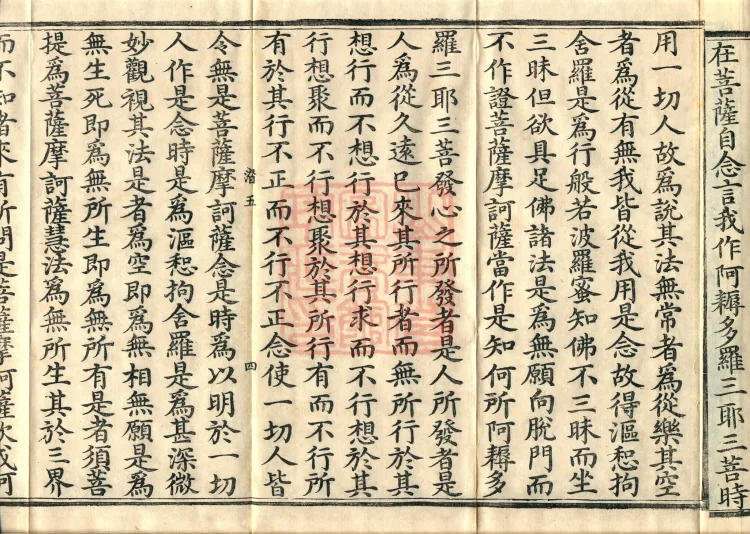 在菩薩自念言我作阿耨多羅三耶三菩時
用一切人故為說其法無常者為從樂其空
者為從有無我皆從我用是念故得漚惒拘
舍羅是為行般若波羅蜜知佛不三昧而坐
三昧但欲具足佛諸法是為無願向脫門而
不作證菩薩摩訶薩當作是知何所阿耨多
羅三耶三菩發心之所發者是人所發者是
人為從久遠已來其所行者而無所行於其
想行而不想行於其想行求而不行想於其
行想聚而不行想聚於其所行有而不行所
有於其行不正而不行不正念使一切人皆
潛五 四
令無是菩薩摩訶薩念是時為以明於一切
人作是念時是為漚惒拘舍羅是為甚深微
妙觀視其法是者為空即為無相無願是為
無生死即為無所生即為無所有是者須菩
提為菩薩摩訶薩慧法為無所生其於三界
而不知者來有所問是菩薩摩訶薩欲成阿